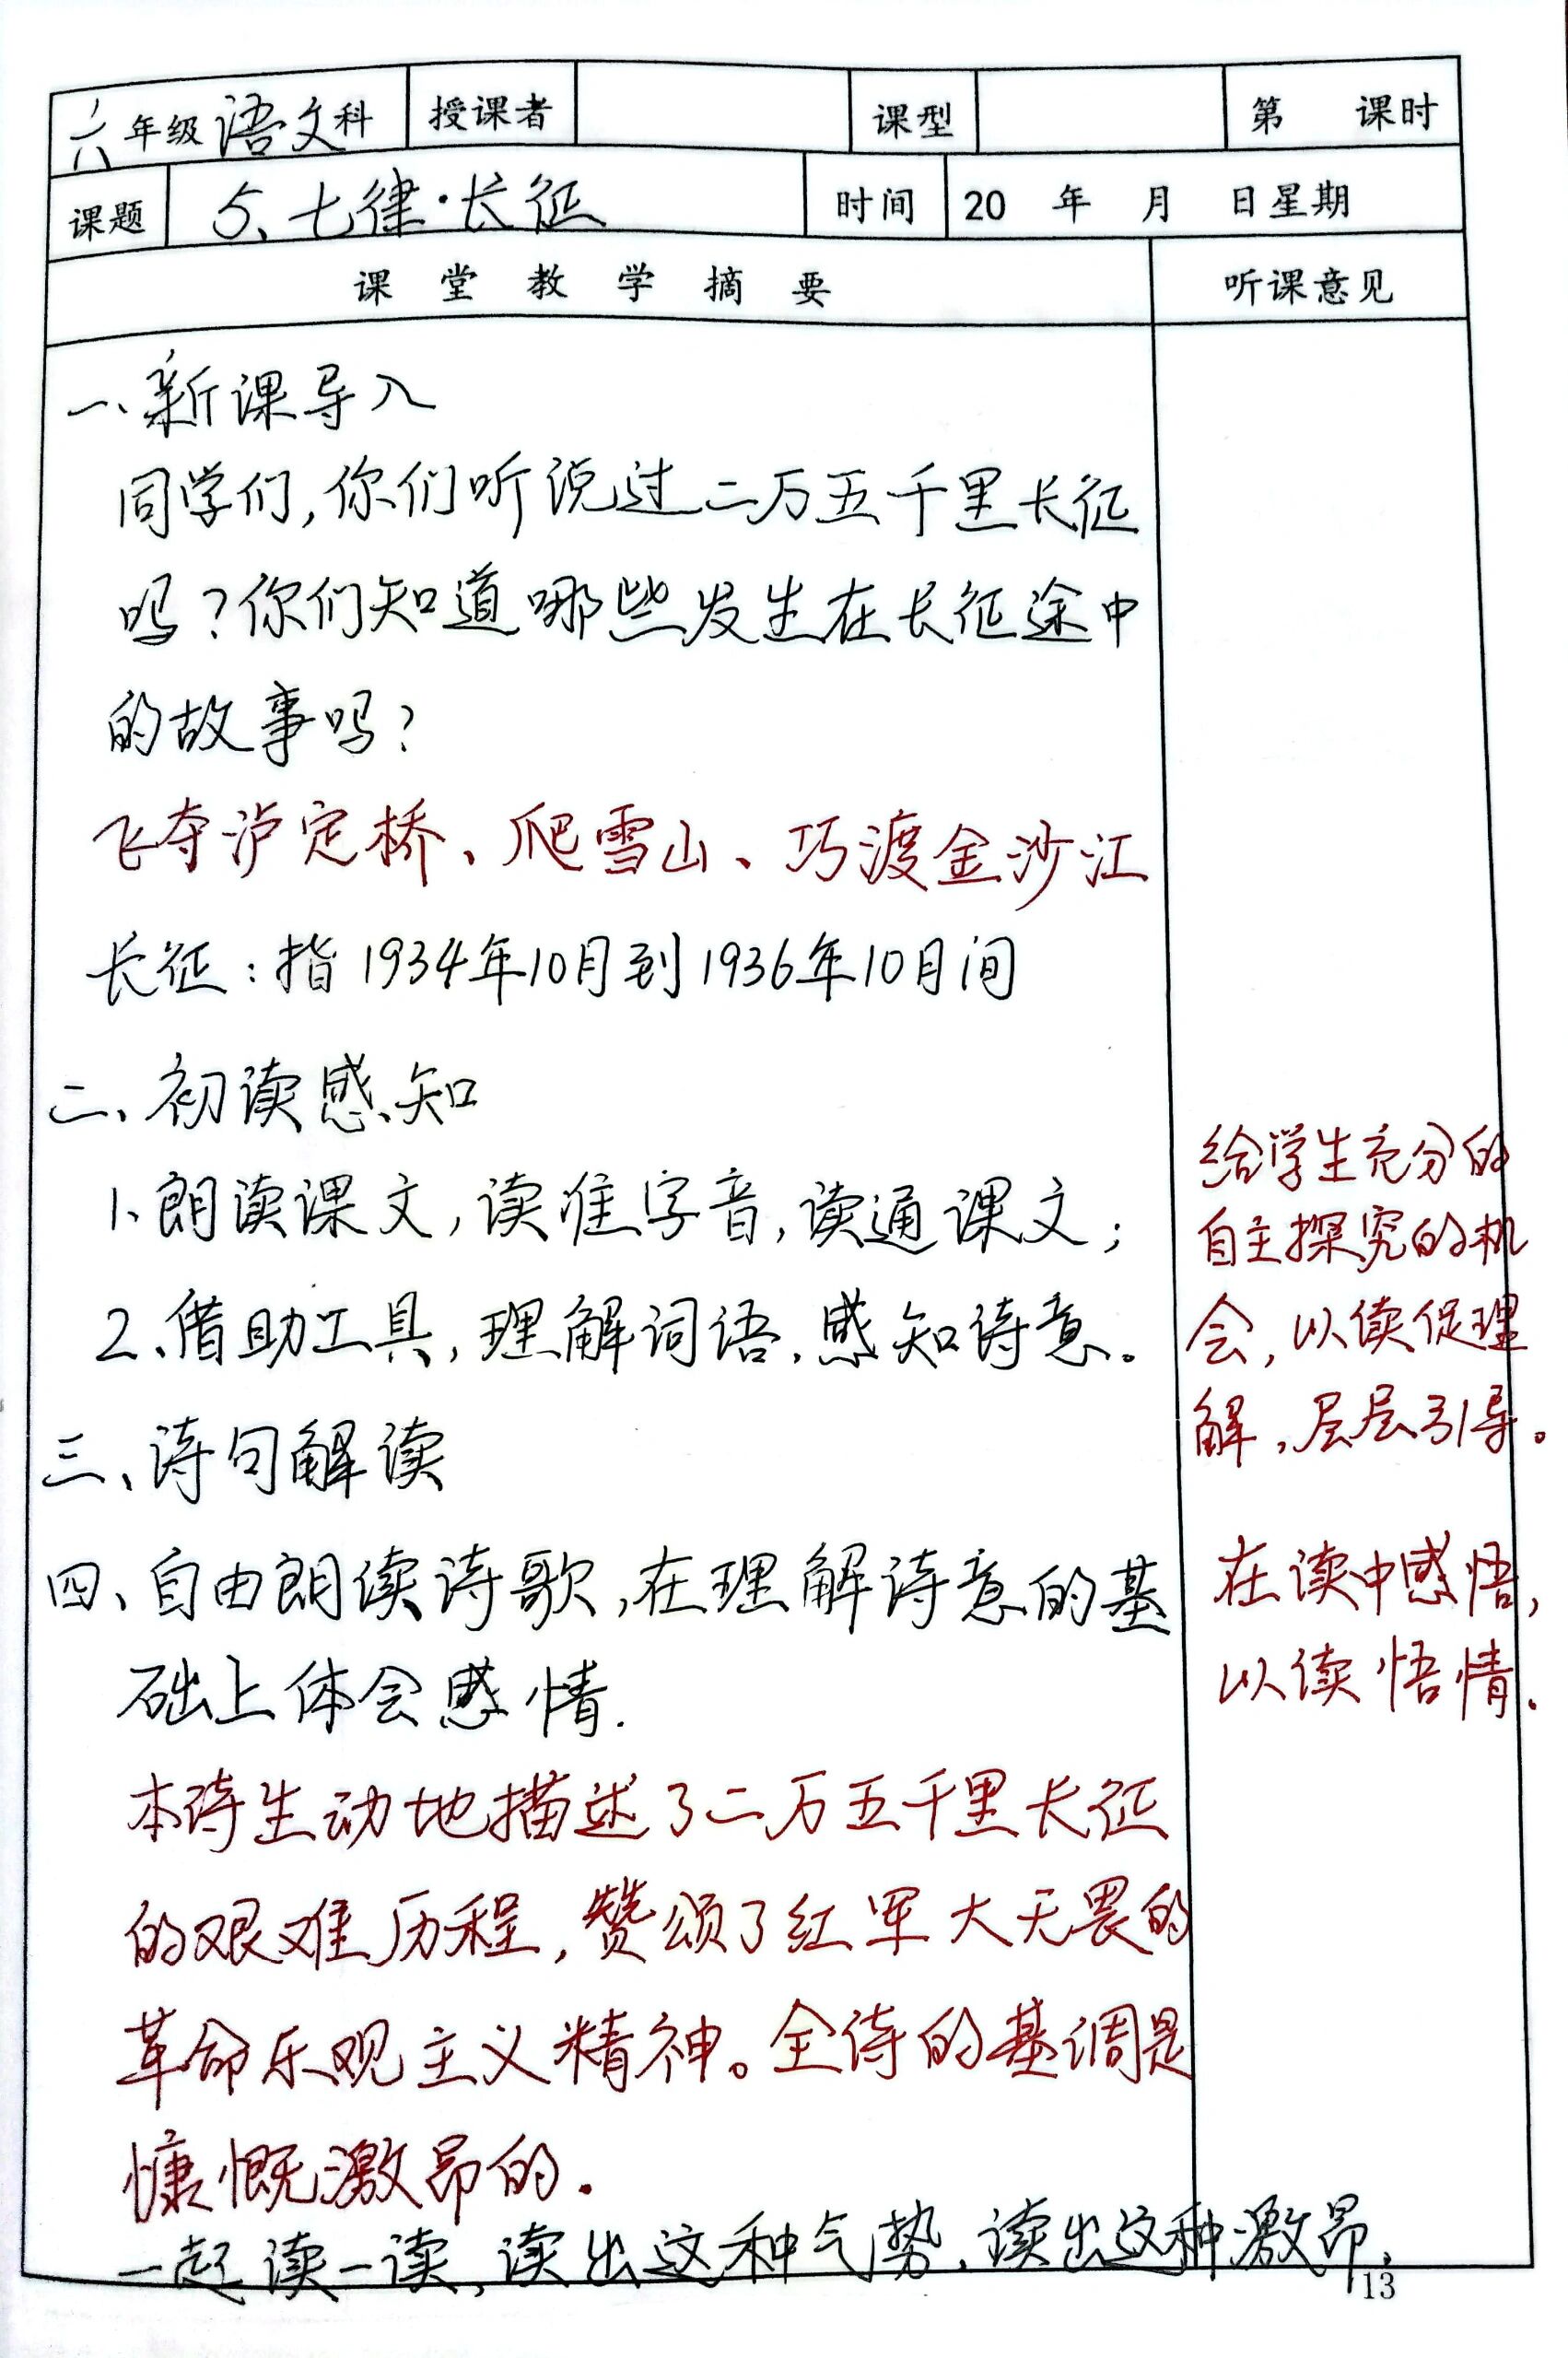 六年级语文科 授课者 课型 第 课时
课题 5、七律·长征 时间 20 年 月 日星期
课堂教学摘要 听课意见
一、新课导入
同学们,你们听说过二万五千里长征
吗?你们知道哪些发生在长征途中
的故事吗?
飞夺泸定桥、爬雪山、巧渡金沙江
长征:指1934年10月到1936年10月间
二、初读感知
1、朗读课文,读准字音,读通课文;
2、借助工具,理解词语,感知诗意。
三、诗句解读
四、自由朗读诗歌,在理解诗意的基
础上体会感情.
本诗生动地描述了二万五千里长征
的艰难历程,赞颂了红军大无畏的
革命乐观主义精神。全诗的基调是
慷慨激昂的.
一起读一读,读出这种气势,读出这种激昂,
给学生充分的
自主探究的机
会,以读促理
解,层层引导。
在读中感悟,
以读悟情.
13